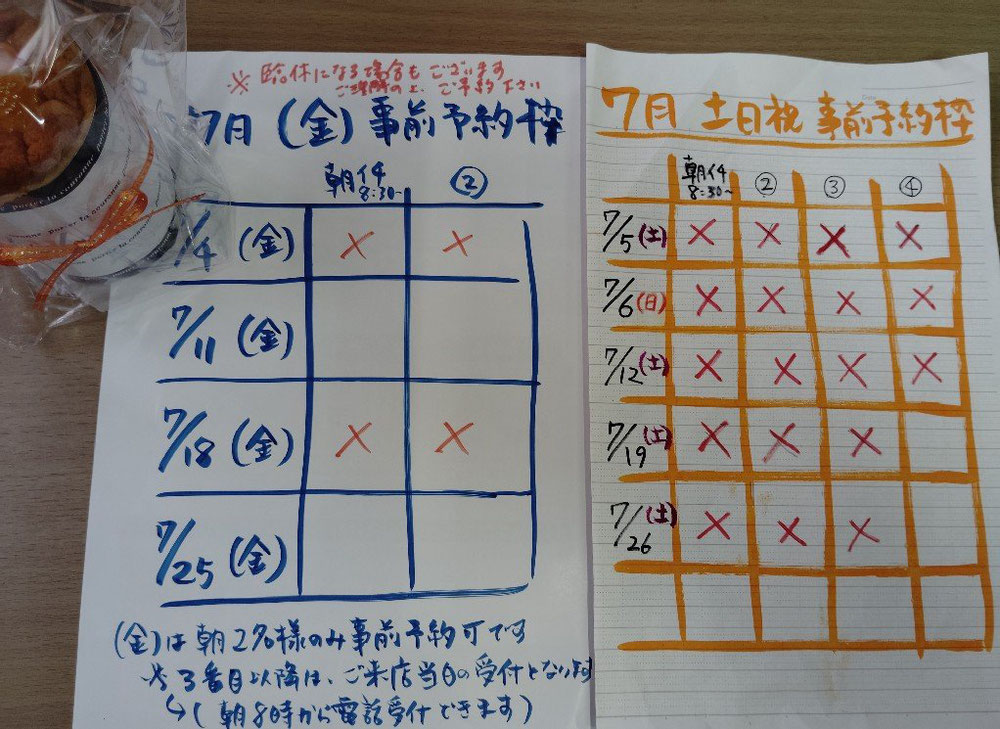 ※ 臨休になる場合もございます
ご理解の上、ご予約下さい
7月 (金) 事前予約枠
朝イチ ②
8:30~
7/4 (金) × ×
7/11 (金)
7/18 (金) × ×
7/25 (金)
(金)は朝2名様のみ事前予約可です
※3番目以降は、ご来店当日の受付となります
↳(朝8時から電話受付できます)
7月 土日祝 事前予約枠
朝イチ ② ③ ④
8:30~
7/5(土) × × × ×
7/6(日) × × × ×
7/12(土) × × × ×
7/19(土) × × ×
7/26(土) × × ×